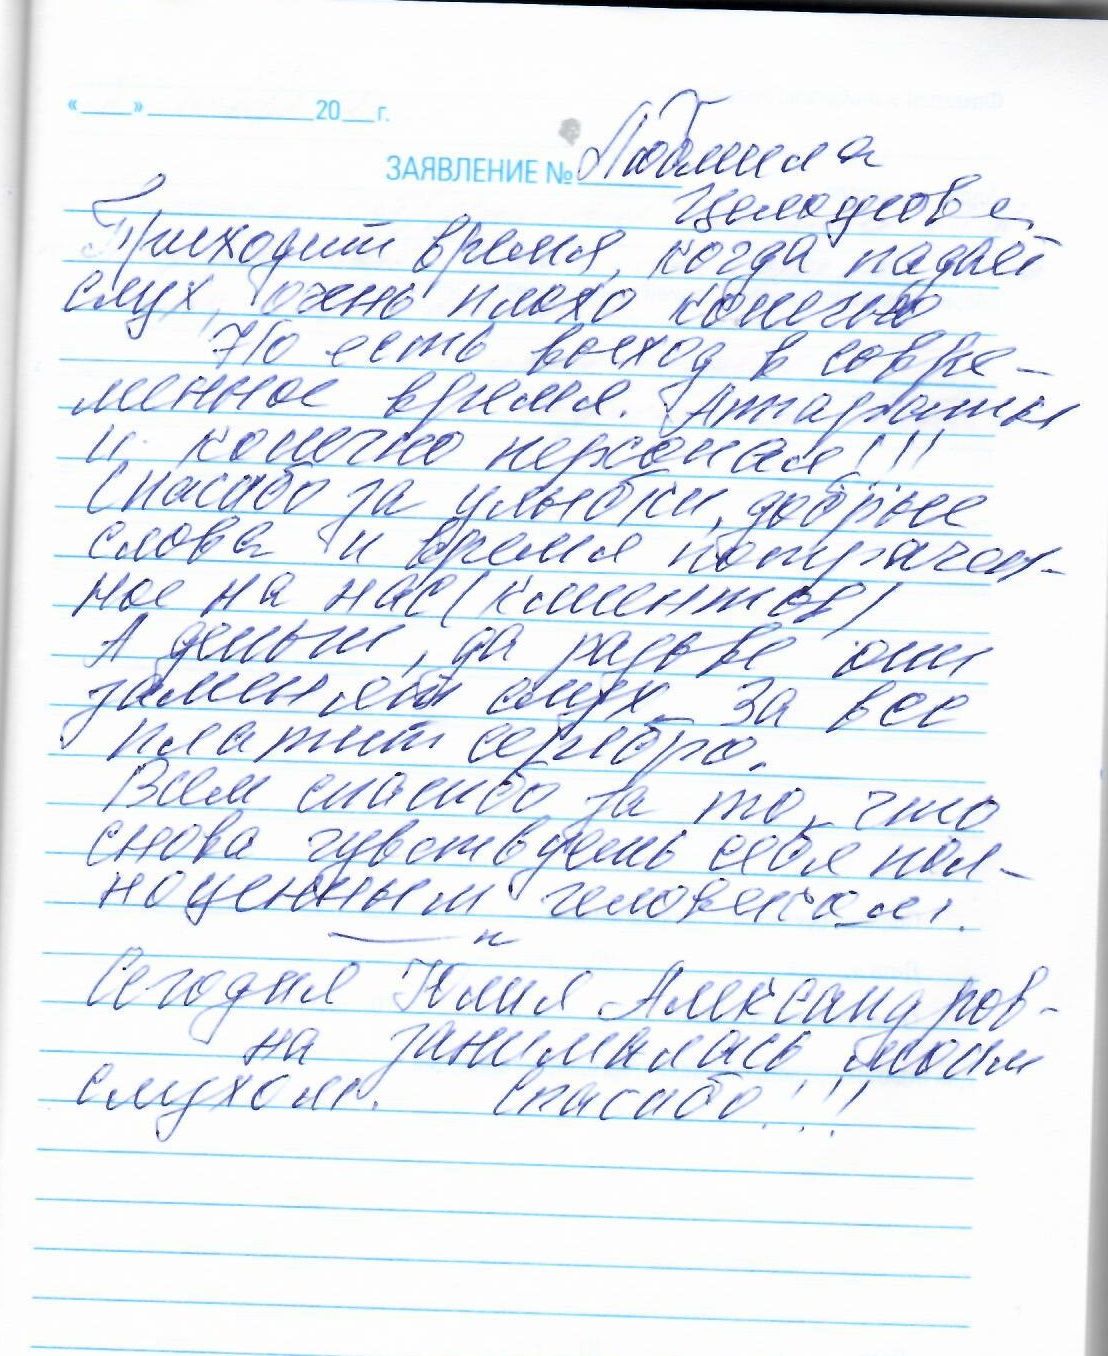 «___» ____________ 20__г.
ЗАЯВЛЕНИЕ № Людмила
Приходит время, когда падает
слух, очень плохо конечно
Но есть выход в совре-
менное время. Аппараты
и конечно персонал!!!
Спасибо за улыбки, добрые
слова и время потрачен-
ное на нас (клиентов)
А деньги, да разве они
заменят слух. За все
платит серебро.
Всем спасибо за то, что
снова чувствуешь себя пол-
ноценным человеком.
Сегодня Юлия Александров-
на занималась моим
слухом. Спасибо!!!